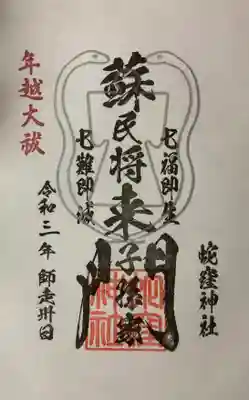 年越大祓
蘇民将来子孫家門
七福即生
七難即滅
令和三年 師走卅日
蛇窪神社